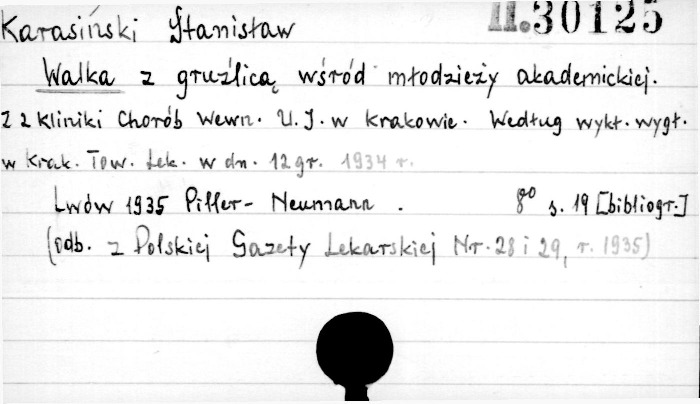 Karasiński Stanisław II.30125
Walka z gruźlicą wśród młodzieży akademickiej.
Z 2 kliniki Chorób Wewn. U.J. w Krakowie. Według wykł. wygł.
w Krak. Tow. Lek. w dn. 12 gr. 1934 r.
Lwów 1935 Piller-Neumann. 8° s. 19 [bibliogr.]
(odb. z Polskiej Gazety Lekarskiej Nr. 28 i 29, r. 1935)